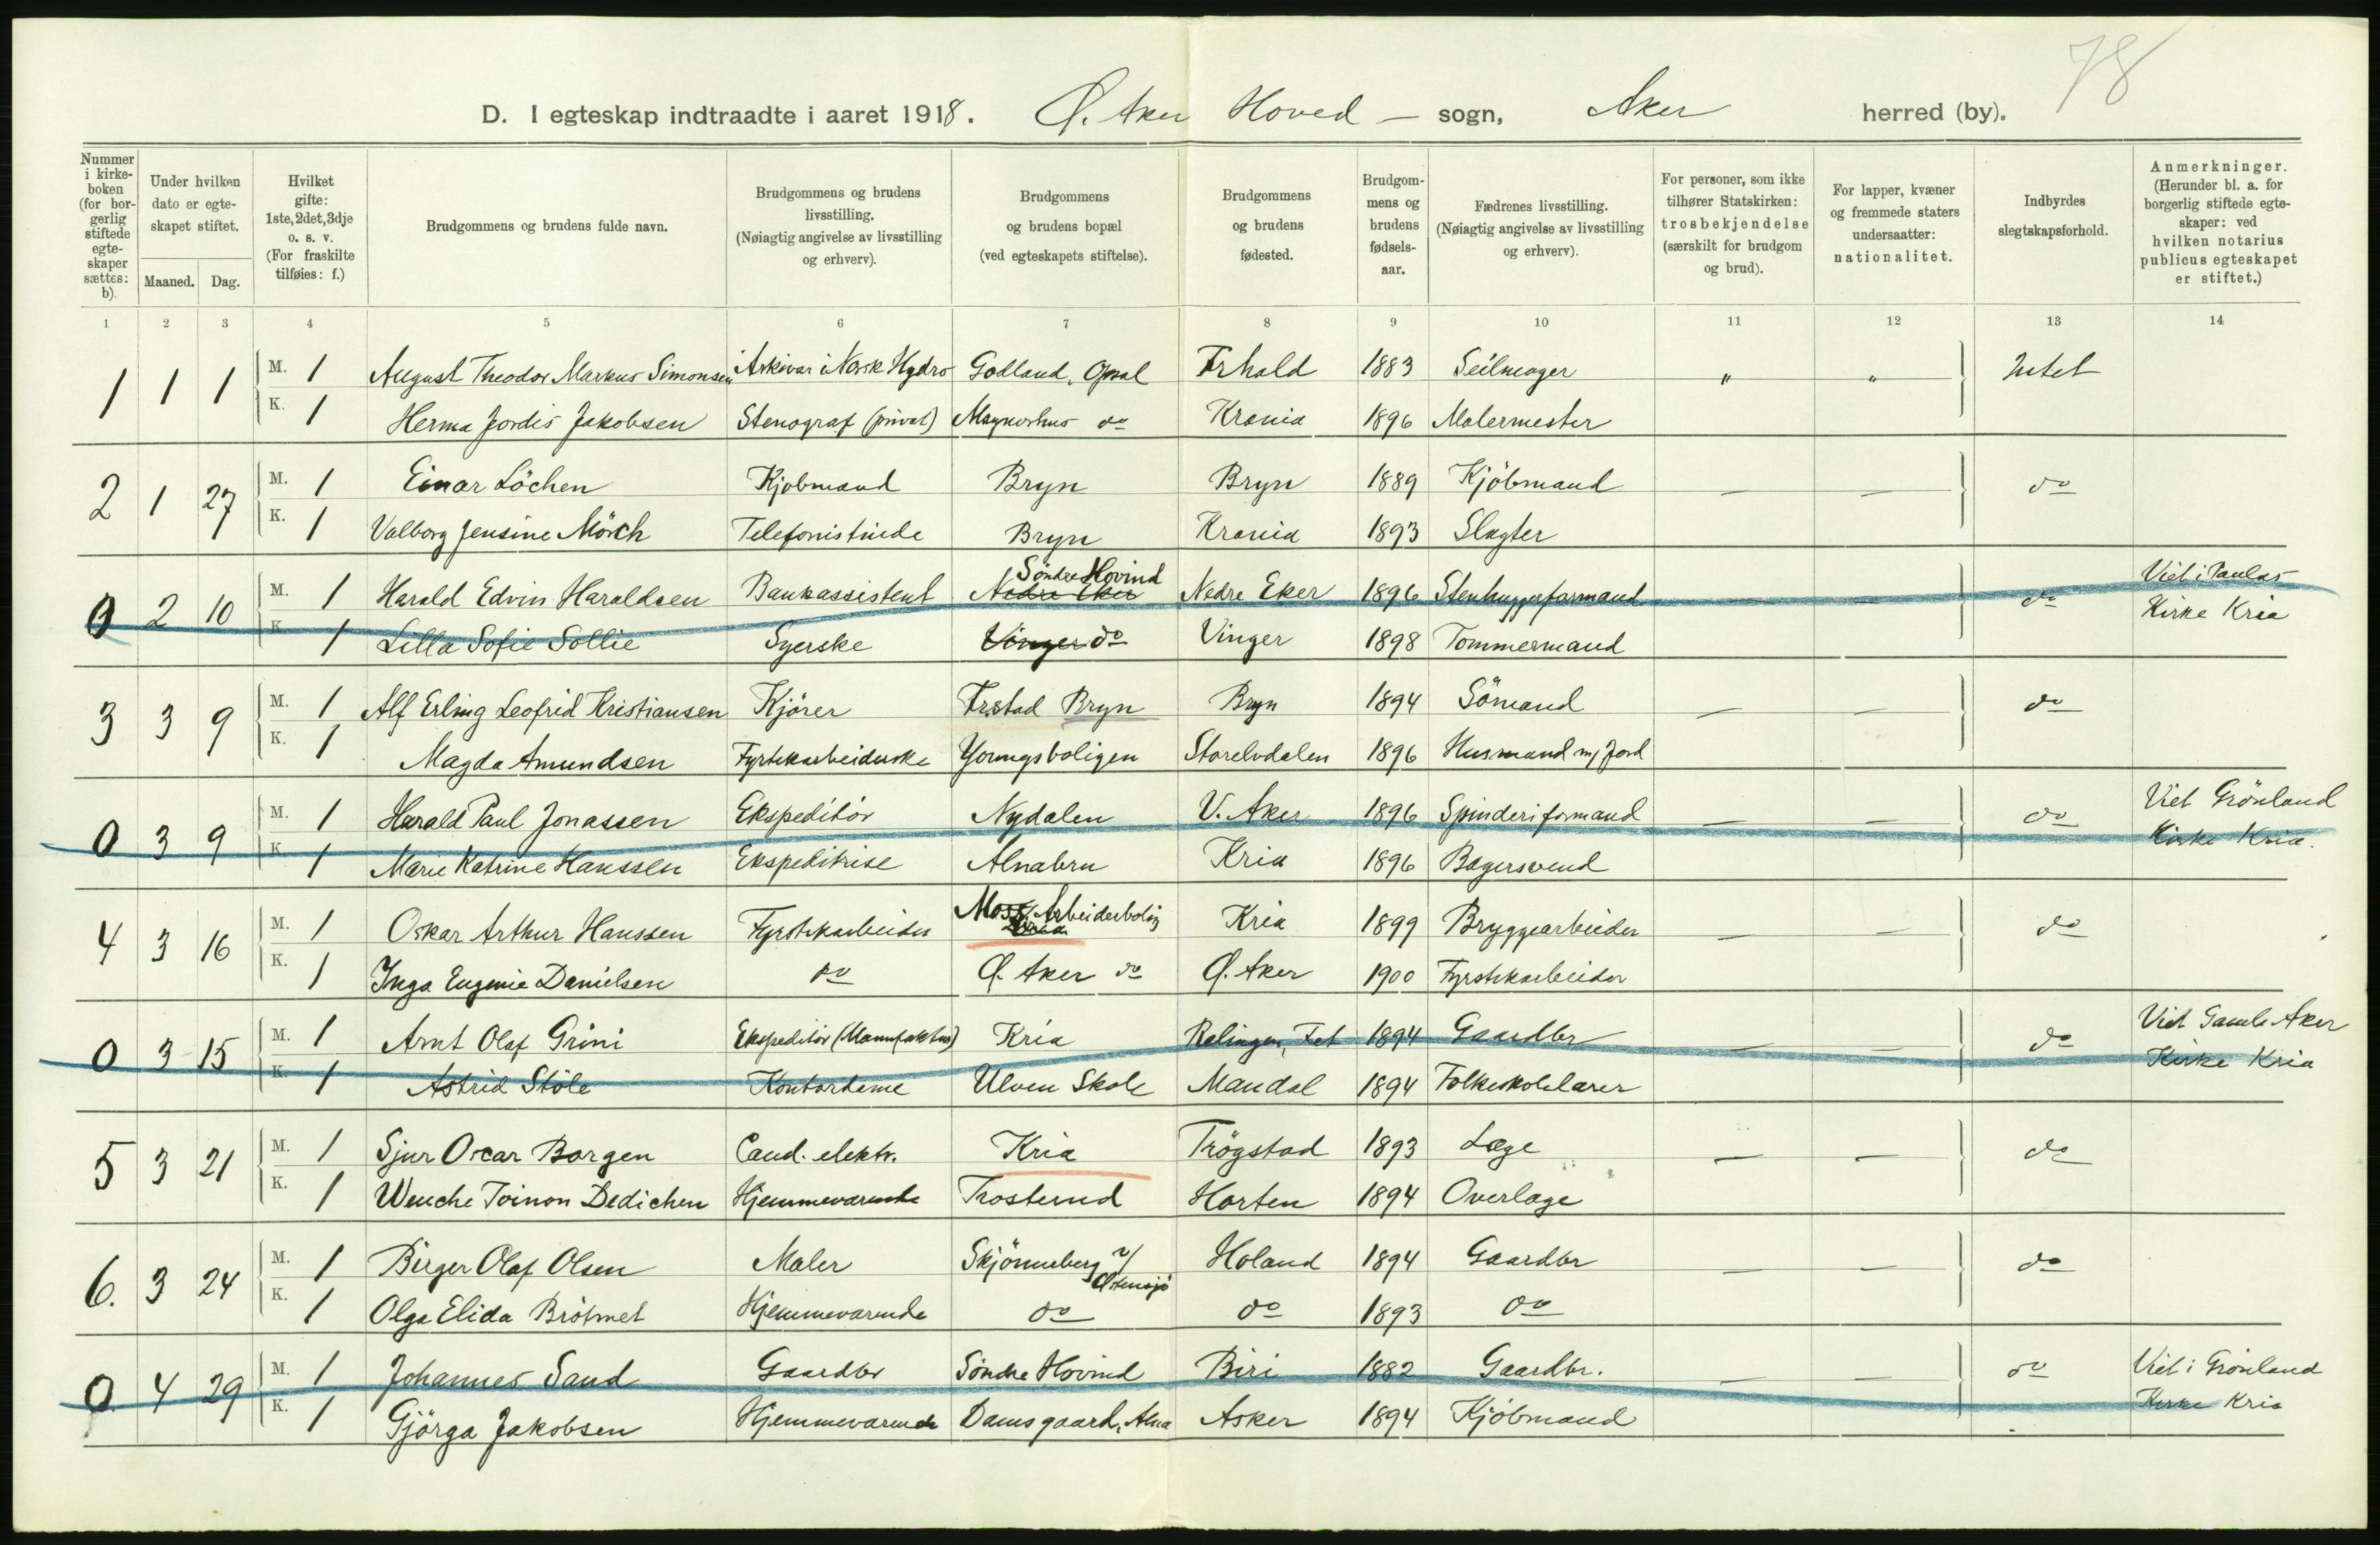 78
D. I egteskap indtraadte i aaret 1918. Ø. Aker Hoved - sogn, Aker herred (by).
Nummer i kirke- boken (for bor- gerlig stiftede egte- skaper sættes: b).
Under hvilken dato er egte- skapet stiftet.
Maaned. Dag.
Hvilket gifte: 1ste, 2det, 3dje o. s. v. (For fraskilte tilføies: f.)
Brudgommens og brudens fulde navn.
Brudgommens og brudens livsstilling. (Nøiagtig angivelse av livsstilling og erhverv).
Brudgommens og brudens bopæl (ved egteskapets stiftelse).
Brudgommens og brudens fødested.
Brudgom- mens og brudens fødsels- aar.
Fædrenes livsstilling. (Nøiagtig angivelse av livsstilling og erhverv).
For personer, som ikke tilhører Statskirken: trosbekjendelse (særskilt for brudgom og brud).
For lapper, kvæner og fremmede staters undersaatter: nationalitet.
Indbyrdes slegtskapsforhold.
Anmerkninger. (Herunder bl. a. for borgerlig stiftede egte- skaper: ved hvilken notarius publicus egteskapet er stiftet.)
1 2 3 4 5 6 7 8 9 10 11 12 13 14
1 1 1 M. 1 August Theodor Markus Simonsen Arkivar i Norsk Hydro Godland, Opsal Frhald 1883 Seilmager " " Intet
K. 1 Herma Jordis Jakobsen Stenograf (privat) do Krania 1896 Malermester
2 1 27 M. 1 Einar Löchen Kjøbmand Bryn Bryn 1889 Kjöbmand — — do
K. 1 Valborg Jensine Mörch Telefonistinde Bryn Krania 1893 Slagter
0 2 10 M. 1 Harald Edvin Haraldsen Bankassistent Söndre Hovind Nedre Eker Nedre Eker 1896 Stenhuggerformand — — do Viet i Paulus
K. 1 Lilla Sofie Sollie Syerske Vinger do Vinger 1898 Tommermand Kirke Kria
3 3 9 M. 1 Alf Erling Leofrid Kristiansen Kjörer Bryn Bryn 1894 Sömand — — do
K. 1 Magda Amundsen Fyrstikarbeiderske Youngsboligen Storelvdalen 1896 Husmand m/ Jord
0 3 9 M. 1 Harald Paul Jonassen Ekspeditör Nydalen V. Aker 1896 Spinderiformand — — do Viet Grönland
K. 1 Marie Katrine Hanssen Ekspeditrise Alnabru Kria 1896 Bagersvend Kirke Kria.
4 3 16 M. 1 Oskar Arthur Hanssen Fyrstikarbeider Arbeiderbolig Kria 1899 Bryggearbeider — — do
K. 1 Inga Eugenie Danielsen do Ø. Aker do Ø. Aker 1900 Fyrstikarbeider
0 3 15 M. 1 Arnt Olaf Grini Ekspeditör (Manufaktur) Kria Relingen, Fet 1894 Gaardbr — — do Viet Gamle Aker
K. 1 Astrid Stöle Kontordame Ulven Skole Mandal 1894 Folkeskolelærer Kirke Kria
5 3 21 M. 1 Sjur Oscar Borgen Cand. elektr. Kria Trögstad 1893 Læge — — do
K. 1 Wenche Toinon Dedichen Hjemmeværende Trosterud Horten 1894 Overlæge
6. 3 24 M. 1 Birger Olaf Olsen Maler Skjönneberg v/ Østensjö Høland 1894 Gaardbr — — do
K. 1 Olga Elida Brötmet Hjemmeværende do do 1893 do
0 4 29 M. 1 Johannes Sand Gaardbr Söndre Hovind Biri 1882 Gaardbr. — — do Viet i Grönland
K. 1 Gjörga Jakobsen Hjemmeværende Damsgaard, Alna Asker 1894 Kjöbmand Kirke Kria